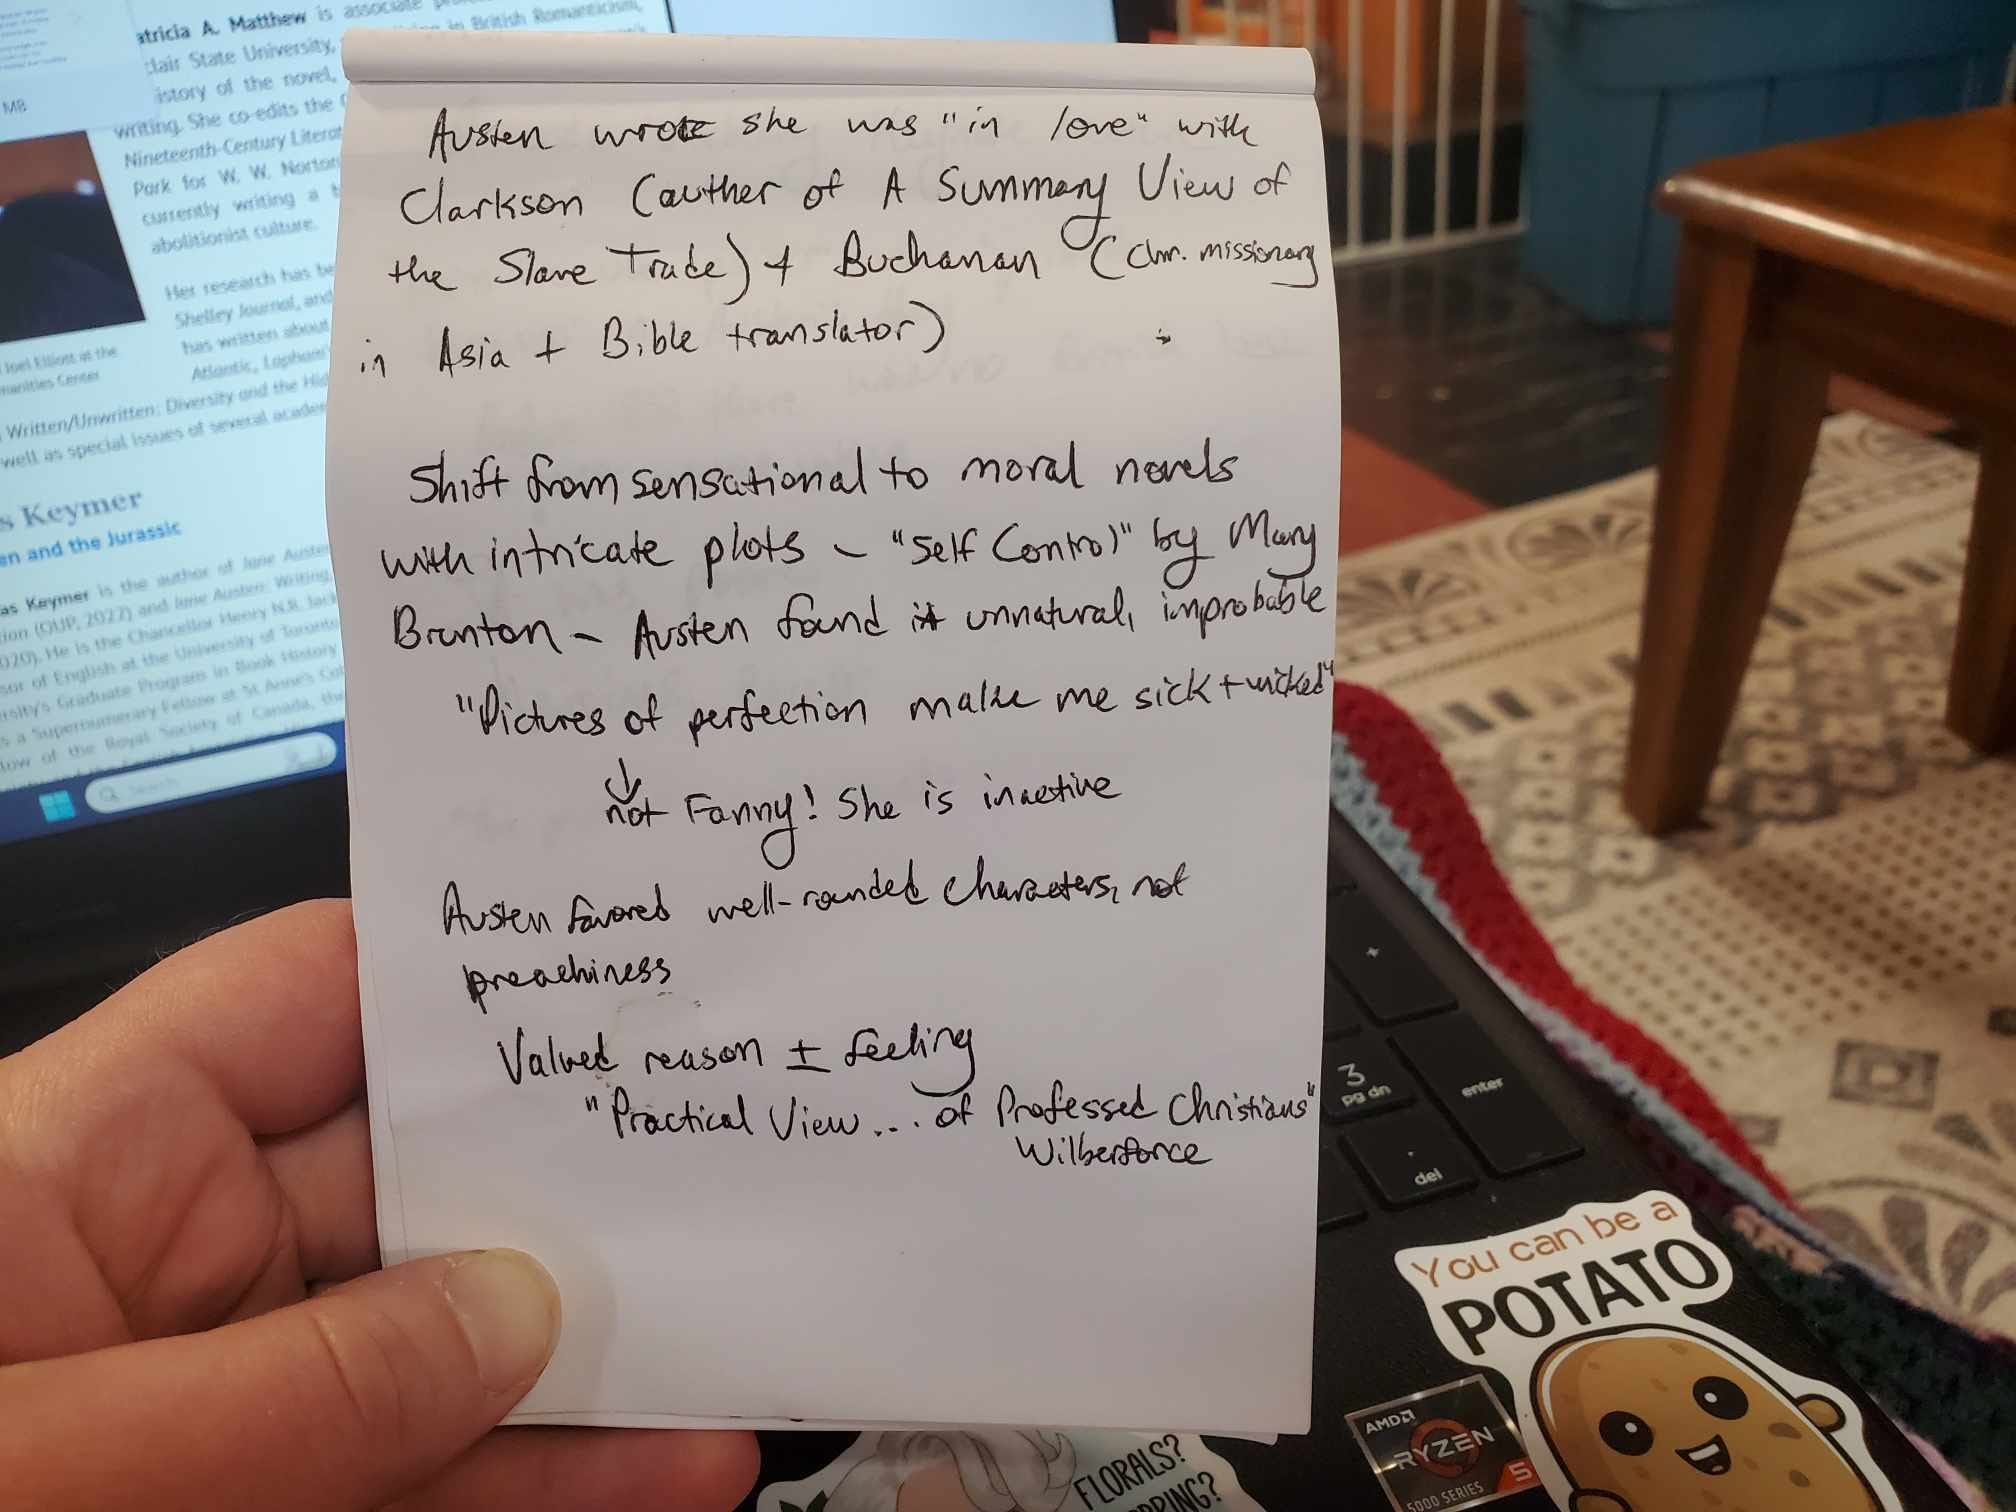 atricia A. Matthew is associate
clair State University, in British Romanticism,
istory of the novel,
writing. She co-edits the
Nineteenth-Century Literat
Park for W. W. Norton
currently writing a
abolitionist culture.
Her research has be
Shelley Journal, and
has written about
Atlantic, Lapham's
Joel Elliott at the
manities Center
Written/Unwritten: Diversity and the Hid
well as special issues of several acade
MB
s Keymer
en and the Jurassic
as Keymer is the author of Jane Auste
tion (OUP, 2022) and Jane Austen: Writing,
020). He is the Chancellor Henry N.R. Jack
sor of English at the University of Toronto
rsity's Graduate Program in Book History
s a Supernumerary Fellow at St. Anne's Col
low of the Royal Society of Canada, the
Search
Austen wrote she was "in love" with
Clarkson (auther of A Summary View of
the Slave Trade) + Buchanan (Chr. missionary
in Asia + Bible translator)
Shift from sensational to moral novels
with intricate plots - "Self Control" by Mary
Brunton - Austen found it unnatural, improbable
"Pictures of perfection make me sick + wicked"
not Fanny! She is inactive
Austen favored well-rounded characters, not
preachiness
Valued reason ± feeling
"Practical View... of Professed Christians"
Wilberforce
+
3
pg dn
enter
.
del
You can be a
POTATO
AMD
RYZEN
5
5000 SERIES
FLORALS?
PRING?